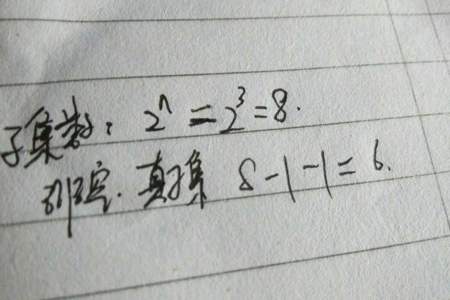 子集数: 2ⁿ = 2³ = 8.
非空真子集 8-1-1=6.